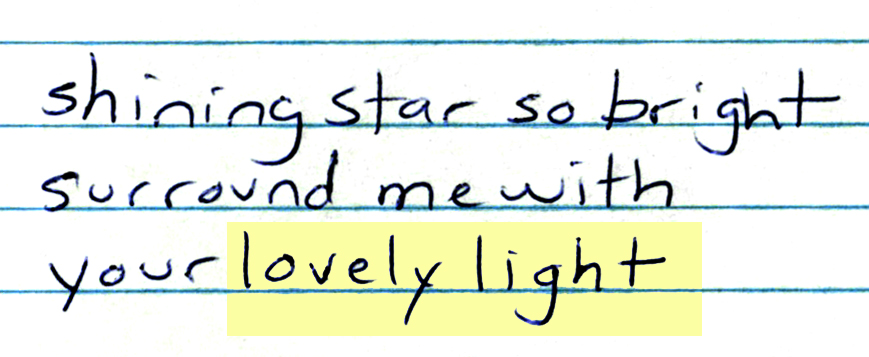 shining star so bright
surround me with
your lovely light